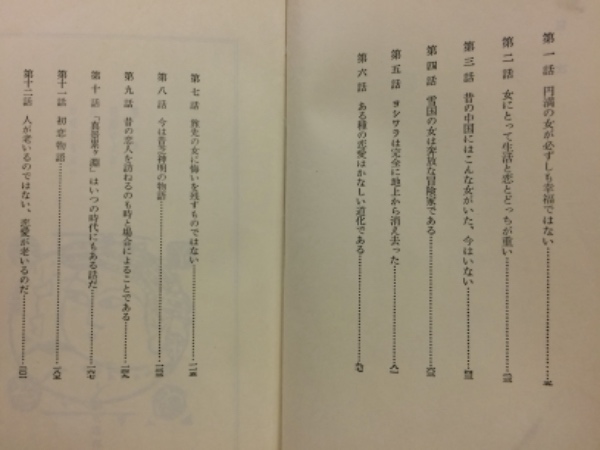 第一話 円満の女が必ずしも幸福ではない
第二話 女にとって生活と恋とどっちが重い
第三話 昔の中国にはこんな女がいた、今はいない
第四話 雪国の女は奔放な冒険家である
第五話 ヨシワラは完全に地上から消え去った
第六話 ある種の恋愛はかなしい道化である
第七話 旅先の女に悔いを残すものではない
第八話 今は昔芝神明の物語
第九話 昔の恋人を訪ねるのも時と場合によることである
第十話 「真景累ヶ淵」はいつの時代にもある話だ
第十一話 初恋物語
第十二話 人が老いるのではない、恋愛が老いるのだ